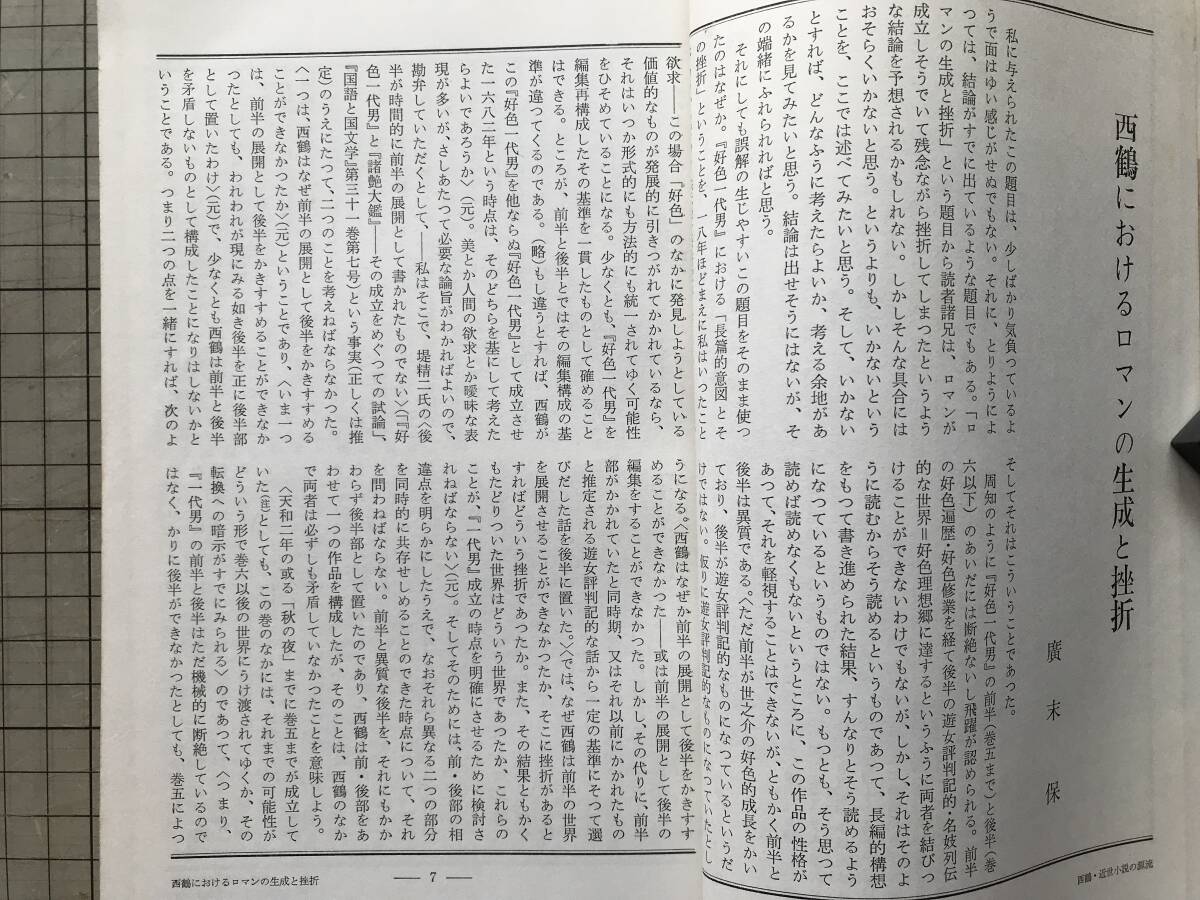 西鶴におけるロマンの生成と挫折
廣末保
私に与えられたこの題目は、少しばかり気負っているよ
うで面はゆい感じがせぬでもない。それに、とりようによ
っては、結論がすでに出ているような題目でもある。「ロ
マンの生成と挫折」という題目から読者諸兄は、ロマンが
成立しそうでいて残念ながら挫折してしまったというよう
な結論を予想されるかもしれない。しかしそんな具合には
おそらくいかないと思う。というよりも、いかないという
ことを、ここでは述べてみたいと思う。そして、いかない
とすれば、どんなふうに考えたらよいか、考える余地があ
るかを見てみたいと思う。結論は出せそうにはないが、そ
の端緒にふれられればと思う。
それにしても誤解の生じやすいこの題目をそのまま使っ
たのはなぜか。『好色一代男』における「長篇的意図とそ
の挫折」ということを、一八年ほどまえに私はいったこと
そしてそれはこういうことであった。
周知のように『好色一代男』の前半(巻五まで)と後半(巻
六以下)のあいだには断絶ないし飛躍が認められる。前半
の好色遍歴・好色修業を経て後半の遊女評判記的・名妓列伝
的な世界＝好色理想郷に達するというふうに両者を結びつ
けることができないわけでもないが、しかし、それはそのよ
うに読むからそう読めるというものであって、長編的構想
をもって書き進められた結果、すんなりとそう読めるよう
になっているというものではない。もっとも、そう思って
読めば読めなくもないというところに、この作品の性格が
あって、それを軽視することはできないが、ともかく前半と
後半は異質である。〈ただ前半が世之介の好色的成長をかい
ており、後半が遊女評判記的なものになっているというだ
けではない。仮りに遊女評判記的なものになっていたとし
西鶴・近世小説の源流
欲求――この場合『好色』のなかに発見しようとしている
価値的なものが発展的に引きつがれてかかれているなら、
それはいつか形式的にも方法的にも統一されてゆく可能性
をひそめていることになる。少なくとも、『好色一代男』を
編集再構成したその基準を一貫したものとして確めること
はできる。ところが、前半と後半とではその編集構成の基
準が違ってくるのである。(略)もし違うとすれば、西鶴が
この『好色一代男』を他ならぬ『好色一代男』として成立させ
た一六八二年という時点は、そのどちらを基にして考えた
らよいであろうか〉(元)。美とか人間の欲求とか曖昧な表
現が多いが、さしあたって必要な論旨がわかればよいので、
勘弁していただくとして、――私はそこで、堤精二氏の〈後
半が時間的に前半の展開として書かれたものでない〉(『好
色一代男』と『諸艶大鑑』――その成立をめぐっての試論」、
『国語と国文学』第三十一巻第七号)という事実(正しくは推
定)のうえにたって、二つのことを考えねばならなかった。
〈一つは、西鶴はなぜ前半の展開として後半をかきすすめる
ことができなかったか〉(元)ということであり、〈いま一つ
は、前半の展開として後半をかきすすめることができなか
ったとしても、われわれが現にみる如き後半を正に後半部
として置いたわけ〉(元)で、少なくとも西鶴は前半と後半
を矛盾しないものとして構成したことになりはしないかと
いうことである。つまり二つの点を一緒にすれば、次のよ
うになる。〈西鶴はなぜか前半の展開として後半をかきすす
めることができなかった――或は前半の展開として後半の
編集をすることができなかった。しかし、その代りに、前半
部がかかれていたと同時期、又はそれ以前にかかれたもの
と推定される遊女評判記的な話から一定の基準にそって選
びだした話を後半に置いた。〉〈では、なぜ西鶴は前半の世界
を展開させることができなかったか、そこに挫折があると
すればどういう挫折であったか。また、その結果ともかく
もたどりついた世界はどういう世界であったか、これらの
ことが、『一代男』成立の時点を明確にさせるために検討さ
れねばならない〉(元)。そしてそのためには、前・後部の相
違点を明らかにしたうえで、なおそれら異なる二つの部分
を同時的に共存せしめることのできた時点について、それ
を問わねばならない。前半と異質な後半を、それにもかか
わらず後半部として置いたのであり、西鶴は前・後部をあ
わせて一つの作品を構成したが、そのことは、西鶴のなか
で両者は必ずしも矛盾していなかったことを意味しよう。
〈天和二年の或る「秋の夜」までに巻五までが成立して
いた(注)としても、この巻のなかには、それまでの可能性が
どういう形で巻六以後の世界にうけ渡されてゆくか、その
転換への暗示がすでにみられる〉のであって、〈つまり、
『一代男』の前半と後半はただ機械的に断絶しているので
はなく、かりに後半ができなかったとしても、巻五によっ
西鶴におけるロマンの生成と挫折
― 7 ―